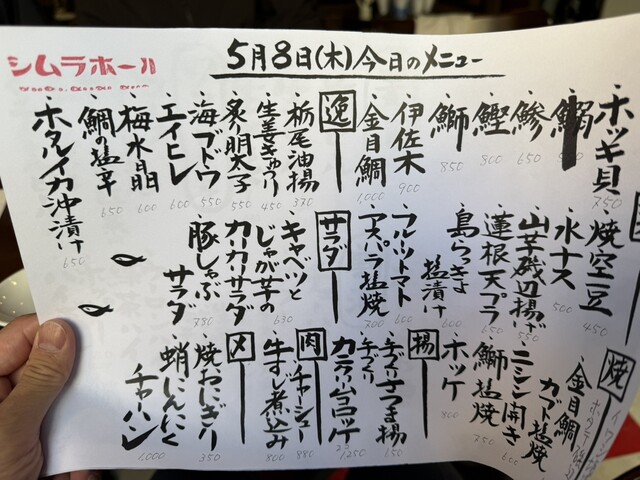 シムラホール
5月8日(木)今日のメニュー
ホッキ貝 750
鯵 650
鰹 800
鰤 850
伊佐木 900
金目鯛 1,000
逸
栃尾油揚 370
生姜きゅうり 450
炙り明太子 550
海ブドウ 550
エイヒレ 600
梅水晶 600
鯛の塩辛 650
ホタルイカ沖漬け 650
焼空豆 450
水ナス 500
山芋磯辺揚げ 550
蓮根天プラ 650
島らっきょ
塩漬け
フルーツトマト 600
アスパラ塩焼 700
サラダ
キャベツと
じゃが芋の 630
カーカーサラダ
豚しゃぶ 780
サラダ
焼
金目鯛
カマト塩焼
ニシン開き 600
鰤塩焼 750
ホッケ 800
揚
手づくりさつま揚 650
手づくり
カニクリームコロッケ 1250
肉
チャーシュー 880
牛すじ煮込み 800
〆
焼おにぎり 350
蛸にんにく
チャーハン 1,000